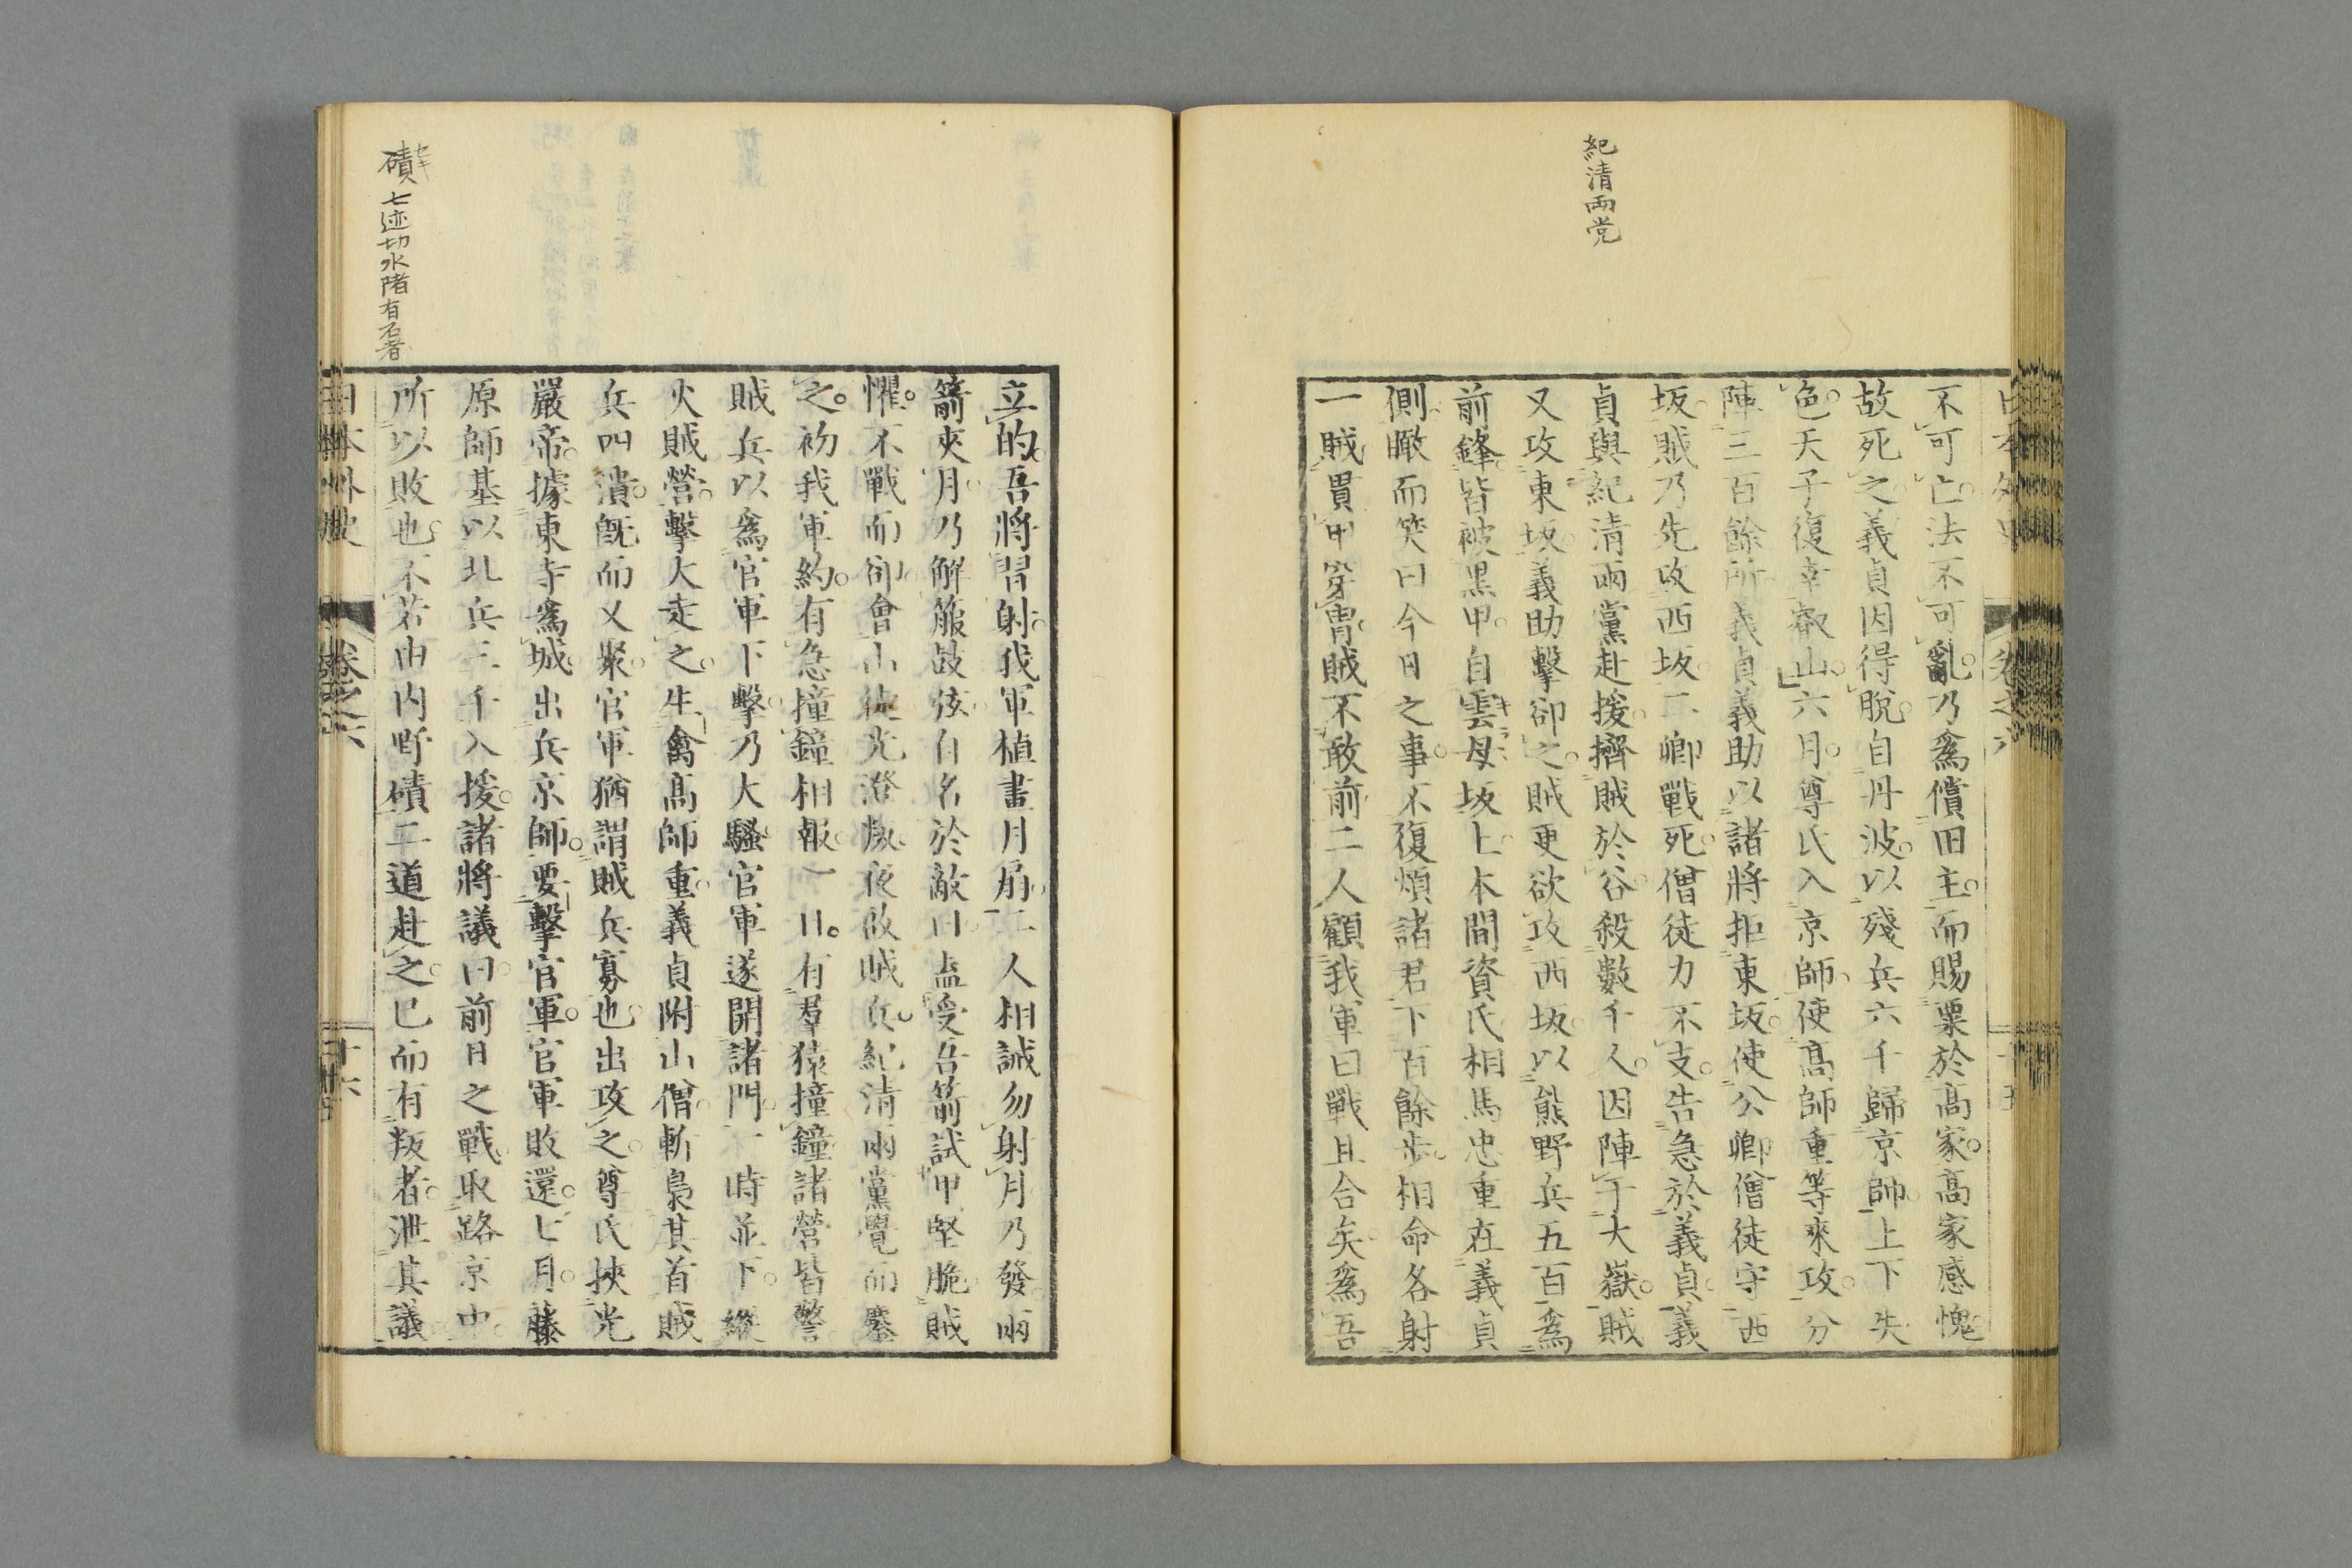 紀清両党
不可亡法不可亂乃爲償田主而賜粟於高家高家感愧
故死之義貞因得脫自丹波以殘兵六千歸京師上下失
色天子復幸叡山六月尊氏入京師使高師重等來攻分
陣三百餘所義貞義助以諸將拒東坂使公卿僧徒守西
坂賊乃先攻西坂二卿戰死僧徒力不支告急於義貞義
貞與紀清兩黨赴援擠賊於谷殺數千人因陣于大嶽賊
又攻東坂義助擊卻之賊更欲攻西坂以熊野兵五百爲
前鋒皆被黑甲自雲母坂上本間資氏相馬忠重在義貞
側瞰而笑曰今日之事不復煩諸君下百餘步相命各射
一賊貫甲穿胄賊不敢前二人顧我軍曰戰且合矣爲吾
卷之六
立的吾將習射我軍植畫月扇二人相誡勿射月乃發兩
箭夾月乃解箙鼓弦自名於敵曰盍受吾箭試甲堅脆賊
懼不戰而卻會山徒光澄叛夜啟賊兵紀清兩黨覺而鏖
之初我軍約有急撞鐘相報一日有羣猿撞鐘諸營皆警
賊兵以爲官軍下擊乃大騷官軍遂開諸門一時並下縱
火賊營擊大走之生禽高師重義貞附山僧斬梟其首賊
兵四潰既而又聚官軍猶謂賊兵寡也出攻之尊氏挾光
嚴帝據東寺爲城出兵京師要擊官軍官軍敗還七月藤
原師基以北兵三千入援諸將議曰前日之戰取路京中
所以敗也不若由內野磧二道赴之已而有叛者泄其議
日本外史 卷之六 十六
磧 セキ 七迹切水陼有石者